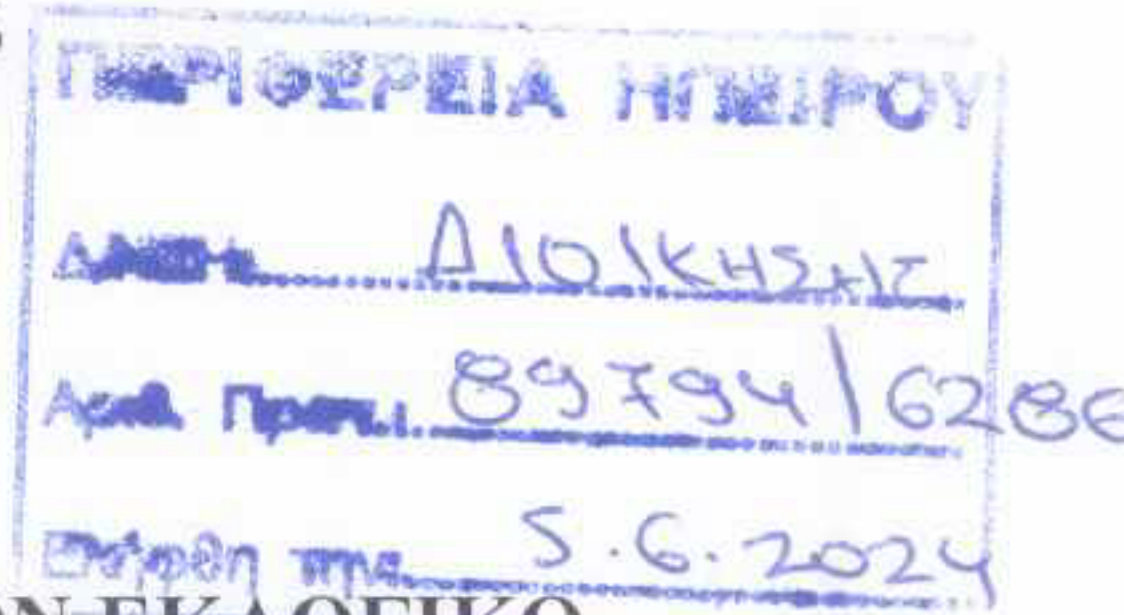 ΠΕΡΙΦΕΡΕΙΑ ΗΠΕΙΡΟΥ
Δ/ΝΣΗ ΔΙΟΙΚΗΣΗΣ
Αριθ. Πρωτ. 89794/6286
Ελήφθη την 5.6.2024
ΩΝ ΕΚΛΟΓΙΚΟ